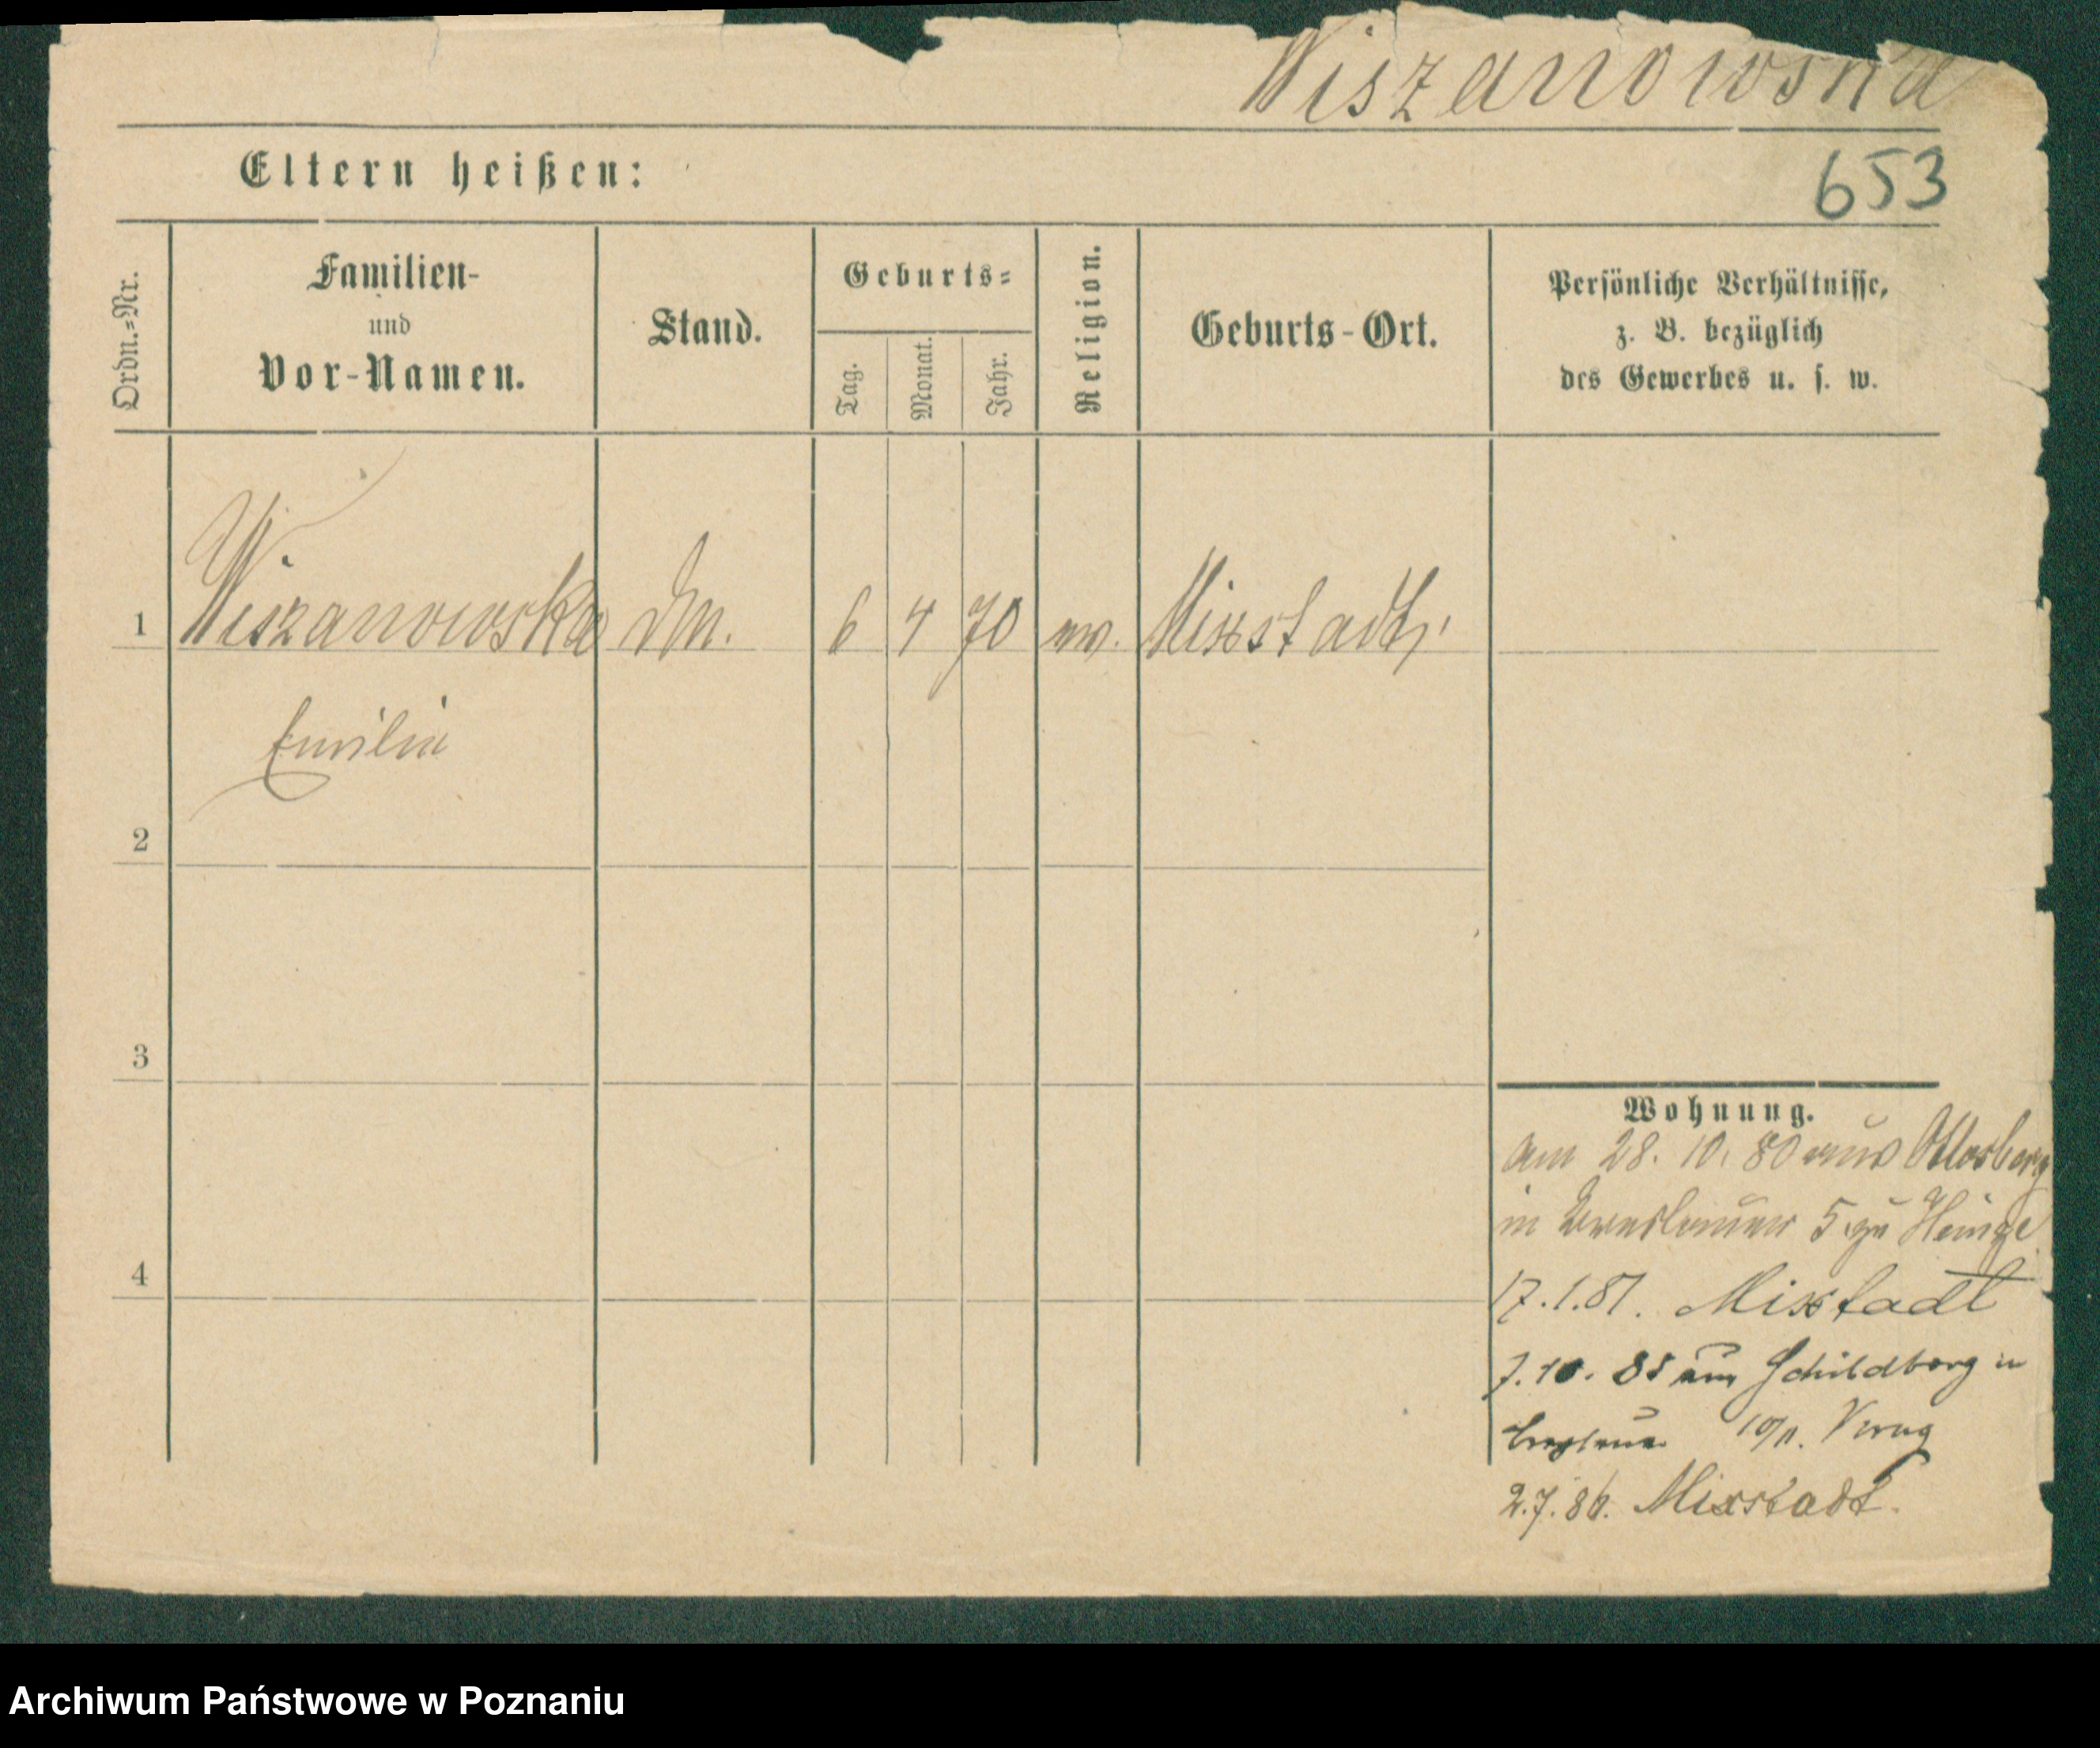 Wiszanowska
Eltern heißen:
653
Ordn.=Nr.
Familien-
und
Vor-Namen.
Stand.
Geburts=
Tag.
Monat.
Jahr.
Religion.
Geburts-Ort.
Persönliche Verhältnisse,
z. B. bezüglich
des Gewerbes u. s. w.
1 Wiszanowska 6 4 70 Mixstadt
Emilie
2
3
4
Wohnung.
am 28. 10. 80 aus
in Breslauer 5 zu
17.1.81. Mixstadt
7.10.85 aus Schildberg in
10/11.
2.7.86. Mixstadt.
Archiwum Państwowe w Poznaniu